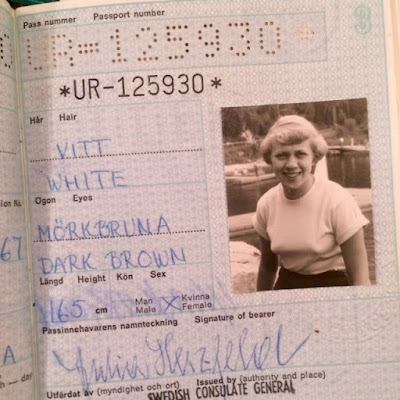 Pass nummer Passport number
UR-125930
*UR-125930*
Hår Hair
VITT
WHITE
Ögon Eyes
ion No.
MÖRKBRUNA
67
DARK BROWN
Längd Height Kön Sex
165 cm Man Male X Kvinna Female
Passinnehavarens namnteckning Signature of bearer
A
Utfärdat av (myndighet och ort) Issued by (authority and place)
h — day
SWEDISH CONSULATE GENERAL